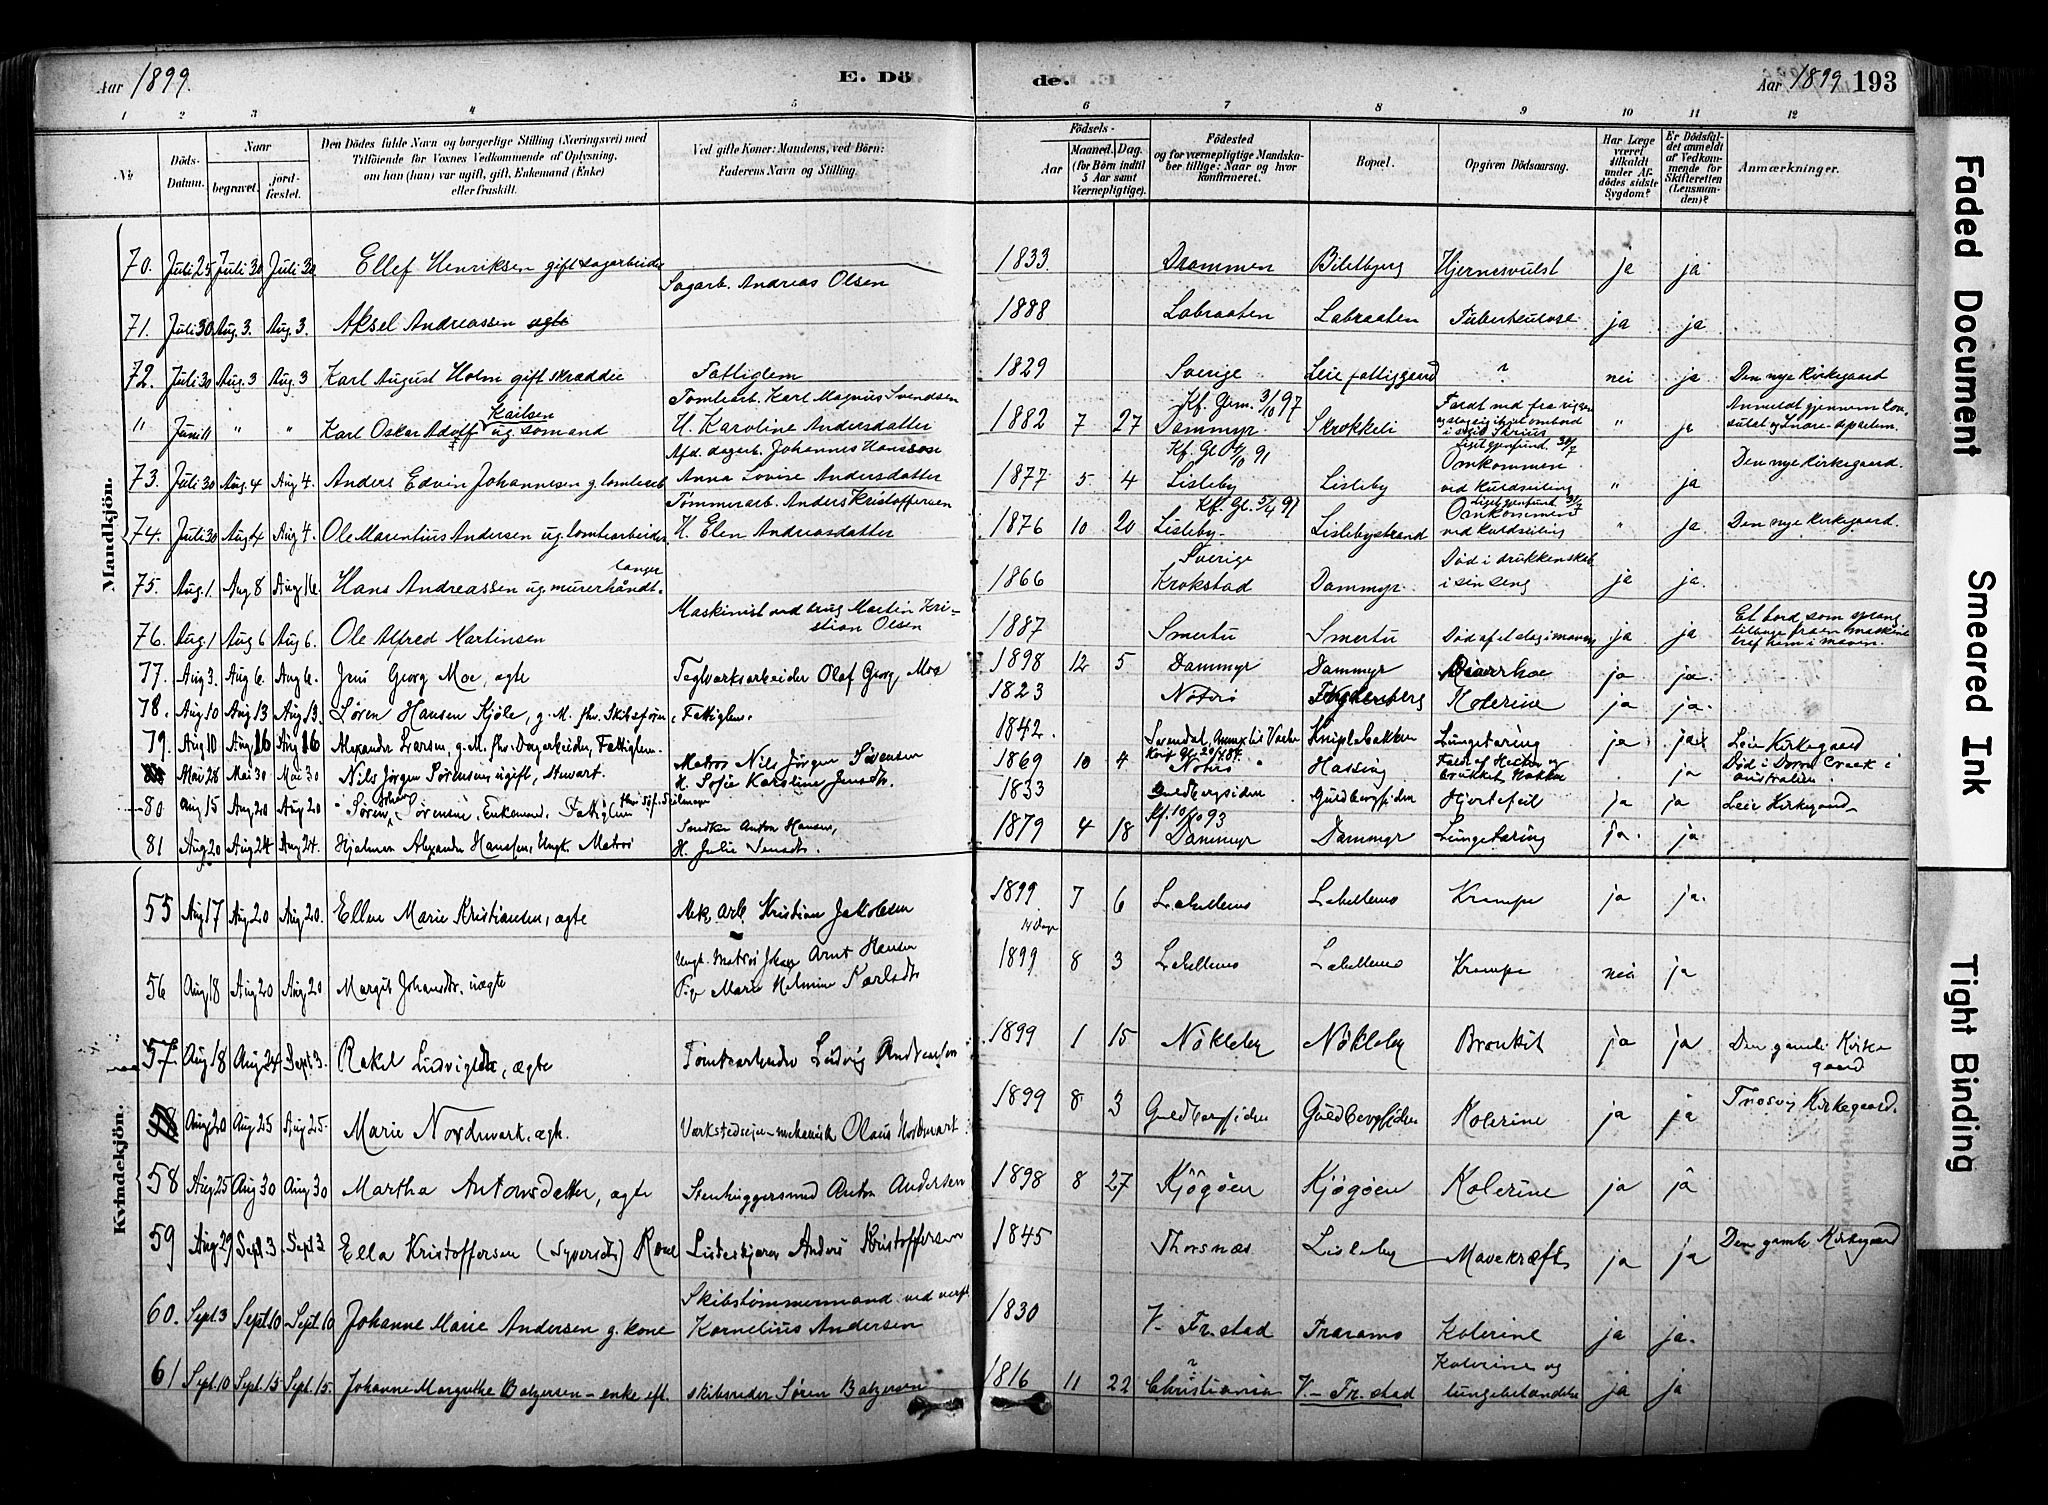 Aar 1899. E. Dö de. Aar 1899 193
1 2 3 4 5 6 7 8 9 10 11 12
No. Döds-Datum. Naar begravet. jordfæstet. Den Dödes fulde Navn og borgerlige Stilling (Næringsvei) med Tilföiende för Voxnes Vedkommende af Oplysning, om han (hun) var ugift, gift, Enkemand (Enke) eller fraskilt. Ved gifte Koner: Mandens, ved Börn: Faderens Navn og Stilling. Födsels- Aar Maaned. Dag. (for Börn indtil 5 Aar samt Værnepligtige). Födested og for værnepligtige Mandskaber tillige: Naar og hvor konfirmeret. Bopæl. Opgiven Dödsaarsag. Har Læge været tilkaldt under Afdödes sidste Sygdom? Er Dödsfaldet anmeldt af Vedkommende for Skifteretten (Lensmanden)? Anmærkninger.
Mandkjön.
70. Juli 25 Juli 30 Juli 30 Ellef Henriksen gift sagarbeider 1833. Drammen Biletbjerg Hjernesvulst ja ja
71. Juli 30 Aug. 3. Aug. 3. Aksel Andreassen ægte Sagarb. Andreas Olsen 1888 Labraaten Labraaten Tuberkulose ja ja
72. Juli 30 Aug. 3 Aug. 3 Karl August Holm gift skrædder Fattiglem 1829 Sverige Leie fattiggaard ? nei ja Den nye Kirkegaard
" Juni 11 " " Karl Oskar Adolf Karlsen ug. sømand Tomtearb. Karl Magnus Svendsen H. Karoline Andersdatter 1882 7 27 Kf. Grm. 3/10 97 Dammyr. Skrokkeli Faldt ned fra riggen og slog sig ihjel ombord " ja Anmeldt gjennem konsulat og Indre-departem.
73. Juli 30 Aug. 4 Aug 4. Anders Edvin Johannesen g. tomtearb. Afd. dagarb. Johannes Hanssøn Anna Lovise Andersdatter 1877 5 4 Lisleby Lisleby Liget gjenfund. 31/7 Omkommen ved kuldseiling " ja Den nye Kirkegaard.
74. Juli 30 Aug 4 Aug 4. Ole Marentius Andersen ug. tomtearbeider Tømmerarb. Anders Kristoffersen H. Elen Andreasdatter 1876 10 20 Kf. Gl. 5/4 91 Lisleby. Lislebystrand Liget gjenfund. 31/7 Omkommen ved kuldseiling " ja Den nye Kirkegaard.
75. Aug. 1 Aug 8 Aug 16. Hans Andreassen ug. murerhåndtlanger 1866 Sverige Krokstad Dammyr. Død i drukkenskab i sin seng ja ja.
76. Aug. 1 Aug 6 Aug 6. Ole Alfred Martinsen Maskinist ved brug Martin Kristian Olsen 1887 Smertu Smertu Død af et slag i maven ja ja Et bord, som sprang tilbage fra en maskine traf ham i maven.
77. Aug 3. Aug 6. Aug 6. Jens Georg Moe, ægte Teglværksarbeider Olaf Georg Moe 1898 12 5 Dammyr Dammyr Diarrhoe ja ja.
78. Aug 10 Aug 13 Aug 13. Søren Hansen Kjøle, g. M. fhv. Skibsfører Fattiglem. 1823 Nøterø Kolerine ja ja.
79. Aug 10 Aug 16 Aug 16 Alexander Larsen, g. M. fhv. Dagarbeider, Fattiglem. 1842. Kniplebakken Lungetæring ja ja Leie Kirkegaard
Mai 28 Mai 30 Mai 30 Nils Jørgen Sørensen ugift, Stuvart. Matros Nils Jørgen Sørensen H. Sofie Karoline Jensdtr. 1869 10 4 Nøterø Hassing brukket Nakken ja Død i Creek i Australien.
80 Aug 15 Aug 20 Aug 20 Søren Johan Sørensen, Enkemand, Fattiglem 1833 Guldbergsiden Guldbergsiden Hjertefeil ja ja Leie Kirkegaard
81 Aug 20 Aug 24 Aug 24. Hjalmar Alexander Hansen, Ungk. Matros Smedken Anton Hansen, H. Julie Jensdtr. 1879 4 18 Kf. 10/10 93 Dammyr Dammyr Lungetæring ja. ja.
Kvindekjön.
55 Aug 17 Aug 20 Aug 20. Ellen Marie Kristiansen, ægte Mek. Arb. Kristian Jakobsen 1899 7 6 Labellemo Labellemo Krampe ja ja.
56 Aug 18 Aug 20 Aug 20 Margit Johansdtr. uægte Ungk. Matros Johan Arnt Hansen Pige Marie Helmine Karlsdtr 14 Dage 1899 8 3 Labellemo Labellemo Krampe nei ja
57. Aug 18 Aug 24 Sept 3. Rakel Ludvigsen, ægte Tomtearbeider Ludvig Andreassen 1899 1 15 Nökleby Nökleby Bronkit ja ja Den gamle Kirkegaard
58 Aug 20 Aug 25 Aug 25. Marie Nordmart, ægte. Værkstedseier-mekanisk Olaus Nordmart 1899 8 3 Guldbergsiden Guldbergsiden Kolerine ja ja Trosvig Kirkegaard.
58 Aug. 25 Aug 30 Aug 30 Martha Antonsdatter, ægte Stenhuggersmed Anton Andersen 1898 8 27 Kjøgöen Kjøgöen Kolerine ja ja
59 Aug 29 Sept. 3 Sept 3 Ella Kristoffersen (Syversdtr) Kone Anders Kristoffersen 1845 Thorsnæs Lisleby Mavekræft ja ja Den gamle Kirkegaard
60. Sept. 3 Sept. 10 Sept. 10 Johanne Marie Andersen g. kone Skibstømmermand ved verft. Kornelius Andersen 1830 V- Fr.stad Traramo Kolerine ja ja.
61 Sept. 10 Sept. 15 Sept. 15. Johanne Margrethe Balzersen - enke eft. skibsreder Søren Balzersen 1816 11 22 ? Christiania V- Fr.stad Kolerine og lungebetændelse ja ja
Faded Document
Smeared Ink
Tight Binding